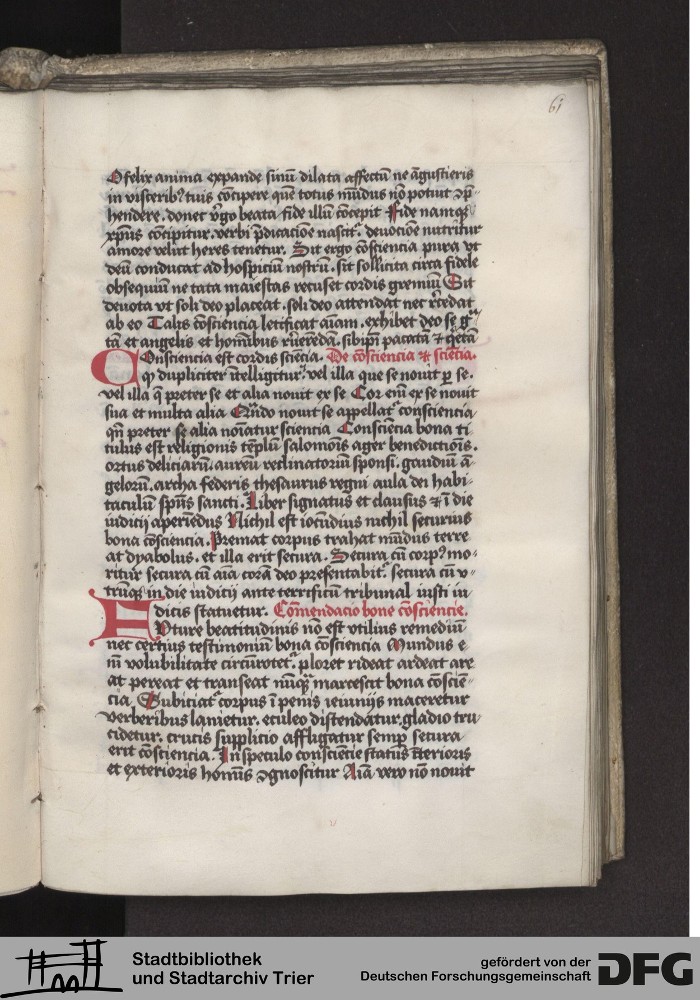 61
O felix anima expande sinū dilata affectū ne āgustieris
in visceribꝰ tuis cōcipere quē totus mūdus nō potuit ↄp̄
hendere . donec v̄go beata fide illū cōcepit Fide namqꝫ
xpūs cōcipitur . verbi p̄dicacōe nascit᷑ . deuocōne nutritur
amore velut heres tenetur . Sit ergo cōsciencia pura vt
deū conducat ad hospiciū nostrū . sit sollicita circa fidele
obsequiū ne tāta maiestas recuset cordis gremiū Sit
deuota vt soli deo placeat . soli deo attendat nec r̄cedat
ab eo Talis cōsciencia letificat aīam . exhibet deo se g᷑
tā et angelis et hominibus r̄uerēdā . sibiip̄i pacatā ⁊ q̄etā
COnsciencia est cordis sciētia . De cōsciencia ⁊ sciētia .
qꝫ dupliciter ītelligitur . vel illa que se nouit ꝑ se .
vel illa q̄ preter se et alia nouit ex se Cor eīn ex se nouit
sua et multa alia Qn̄do nouit se appellat᷑ consciencia
qn̄ preter se alia noīatur sciencia Consciēcia bona ti
tulus est religionis tēplū salomōis ager benedictiōis .
ortus deliciarū . aureū reclinatoriū sponsi . gaudiū ā
gelorū . archa federis thesaurus regni aula dei habi
taculū spūs sancti . Liber signatus et clausus ⁊ ī die
iudicij aperiēdus Nichil est iocūdius nichil securius
bona cōsciencia . Premat corpus trahat mūdus terre
at dyabolus . et illa erit secura . Secura cū corpꝰ mo
ritur secura cū aīa corā deo presentabit᷑ . secura cū v
trūqꝫ in die iudicij ante terrificū tribunal iusti iu
dicis statuetur . Cōmendacio bone cōsciencie .
FVture beatitudinis nō est vtilius remediū
nec certius testimoniū bona cōsciencia Mundus e
nī volubilitate circūrotet᷑ . ploret rideat ardeat are
at pereat et transeat nūqꝫ marcescit bona cōsciē
cia Subiciat᷑ corpus ī penis ieiunijs maceretur
verberibus lanietur . eculeo distendatur . gladio tru
cidetur . crucis supplicio affligatur semꝑ secura
erit cōsciencia . In speculo consciēcie status īterioris
et exterioris homīs ↄgnoscitur Aīa vero nō nouit
Stadtbibliothek
und Stadtarchiv Trier
gefördert von der
Deutschen Forschungsgemeinschaft
DFG